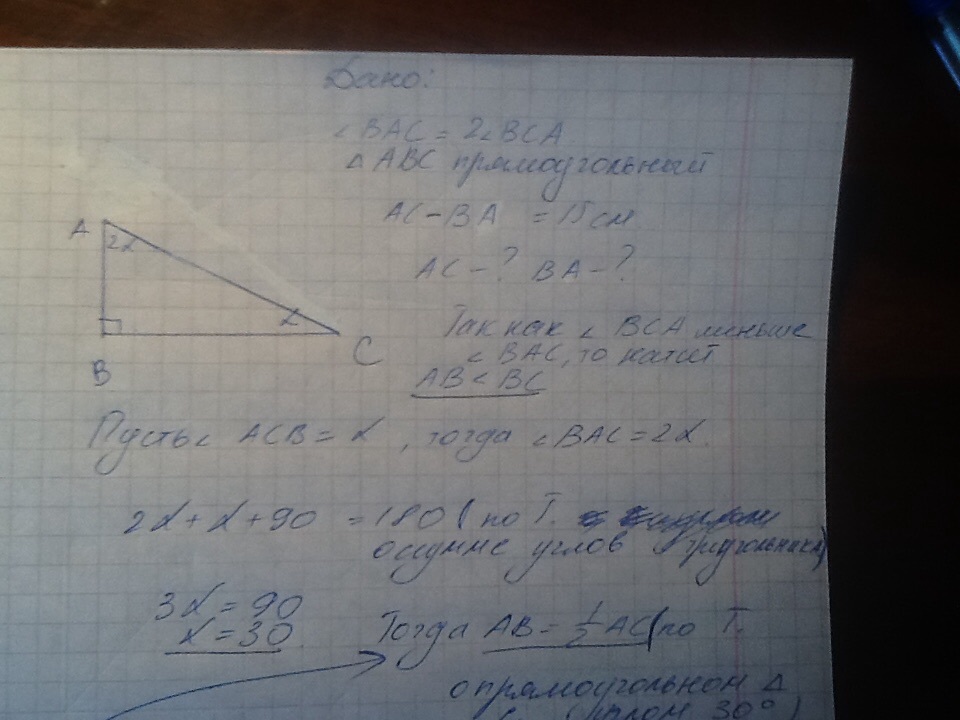 Дано:
∠BAC = 2∠BCA
△ABC прямоугольный
AC - BA = 15 см
AC - ? BA - ?
A
2α
α
B
C
Так как ∠ BCA меньше
∠ BAC, то катет
AB < BC
Пусть ∠ ACB = α, тогда ∠BAC = 2α.
2α + α + 90 = 180 (по Т.
о сумме углов треугольника)
3α = 90
α = 30
Тогда AB = 1/2 AC (по Т.
о прямоугольном △
углом 30°)